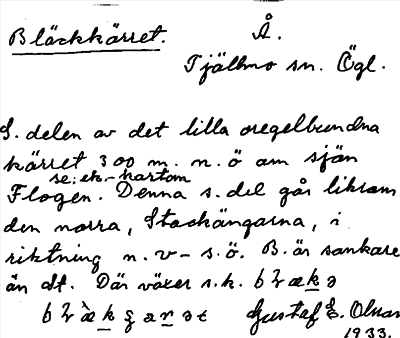 Bläckkärret.
Å.
Tjällmo sn. Ögl.
S. delen av det lilla oregelbundna
kärret 300 m. n. ö om sjön
se: ek.-kartan
Flogen. Denna s. del går liksom
den norra, Stockängarna, i
riktning n. v - s. ö. B. är sankare
än dt. Där växer s. k.
Gustaf E. Olsson
1933.